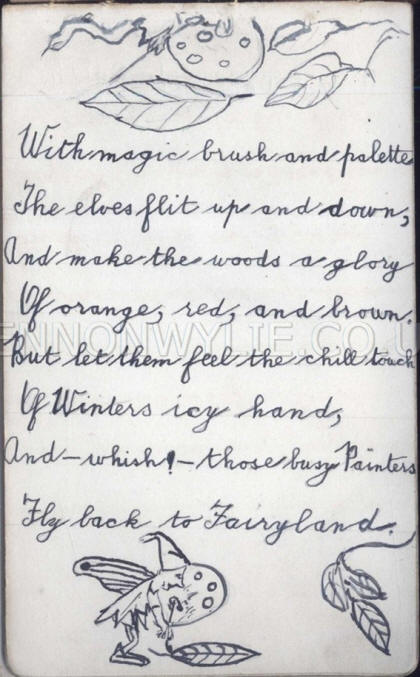 With magic brush and palette
The elves flit up and down,
And make the woods a glory
Of orange, red, and brown.
But let them feel the chill touch
Of Winters icy hand,
And - whish! - those busy Painters
Fly back to Fairyland.
ENNONWYLIE.CO.U